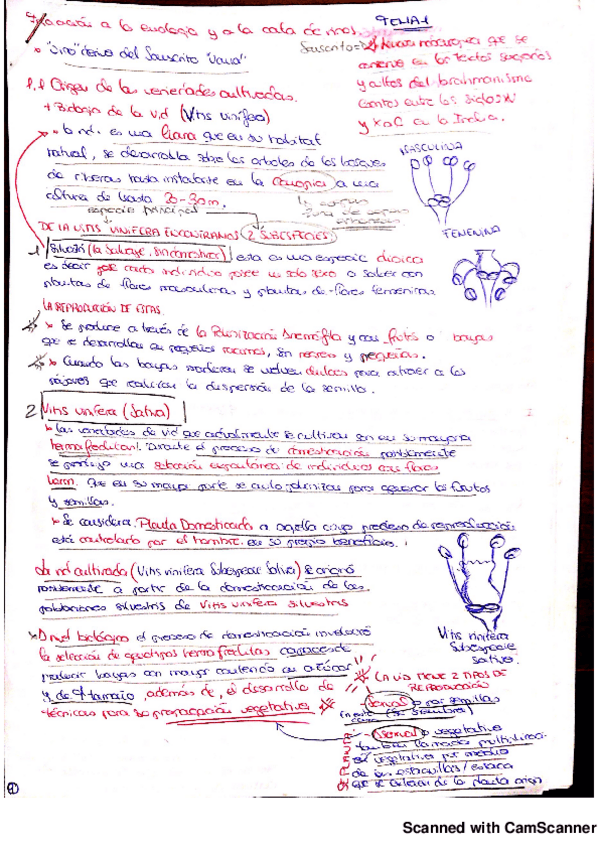 Introducción a la enología y a la cata de vinos. TEMA 1
"Vino" deriva del Sanscrito "Vana"
Sanscrito
que se
en los textos sagrados
y del brahmanismo
escritos entre los siglos XV
y X a.C a la India.
1.1 Origen de las variedades cultivadas.
+ Biología de la vid (Vitis vinífera)
la vid: es una liana que en su habitat
natural, se desarrolla sobre los arboles de los bosques
de riberas hasta instalarse en la a una
altura de hasta 20-30m.
especie principal
MASCULINA
FEMENINA
DE LA VITIS VINIFERA ENCONTRAMOS 2 SUBESPECIES
1 Silvestris (la Salvaje, sin domesticar) esta es una especie dioica
es decir que cada individuo posee un solo sexo a saber con
plantas de flores masculinas y plantas de flores femeninas.
LA REPRODUCCIÓN DE ESTAS.
Se produce a través de la Polinización Anemófila y sus frutos o bayas
que se desarrollan en pequeños racimos, son negras y pequeñas.
Cuando las bayas maduran se vuelven dulces para atraer a los
pájaros que realizan la dispersión de la semilla.
2 Vitis vinifera (Sativa)
Las variedades de vid que actualmente se cultivan son en su mayoria
hermafroditas. Durante el proceso de domesticación posiblemente
se produjo una selección espontánea de individuos con flores
herm. Que en su mayor parte se autopolinizan para asegurar los frutos
y semillas.
Se considera Planta Domesticada a aquella cuyo proceso de reproducción
está controlado por el hombre en su propio beneficio.
La vid cultivada (Vitis vinifera Subespecie Sativa) se originó
posiblemente a partir de la domesticación de las
poblaciones silvestres de Vitis vinifera silvestris
Vitis vinifera
Subespecie
Sativa.
A nivel biológico el proceso de domesticación involucró
la selección de genotipos hermafroditas capaces de
producir bayas con mayor contenido en azúcar
y de + tamaño, además de, el desarrollo de
técnicas para su propagación vegetativa
LA VID TIENE 2 TIPOS DE
REPRODUCCIÓN
- Sexual o por semillas
- Asexual o vegetativa
tambien llamada
vegetativa por medio
de las estaquillas / estaca
que se de la planta
1
Scanned with CamScanner